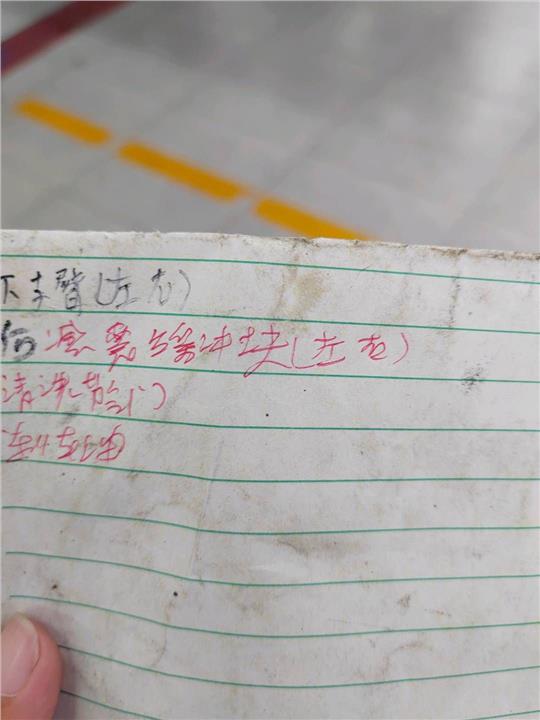 下支臂(左右)
后减震缓冲块(左右)
清洗节气门
刹车油